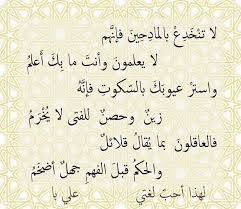 لا تنْخَدِعْ بالمادِحِينَ فإنَّهم
لا يعلمون وأنتَ ما بِكَ أعلمُ
واسترْ عيوبَكَ بالسّكوتِ فإنَّهُ
زينٌ وحصنٌ للفتى لا يُخْرَمُ
فالعاقلونَ بما يُقالُ قلائلٌ
والحكمُ قبلَ الفهمِ جهلٌ أضخمُ
لهذا أحبّ لغتي علي با